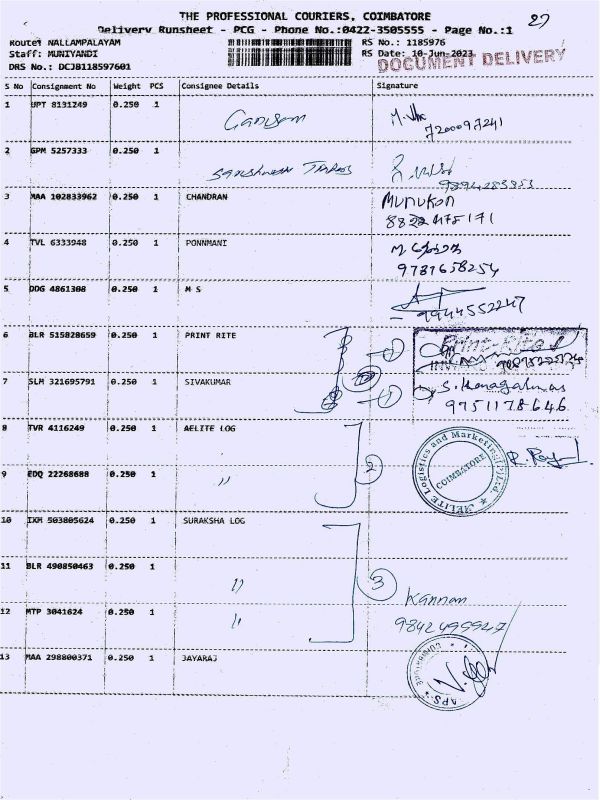 THE PROFESSIONAL COURIERS, COIMBATORE
27
Delivery Runsheet - PCG - Phone No.:0422-3505555 - Page No.:1
Route: NALLAMPALAYAM
RS No.: 1185976
Staff: MUNIYANDI
RS Date: 10-Jun-2023
DRS No.: DCJB118597601
DOCUMENT DELIVERY
S No Consignment No Weight PCS Consignee Details Signature
1 UPT 8131249 0.250 1
7200097241
2 GPM 5257333 0.250 1
9894283353
3 MAA 102833962 0.250 1 CHANDRAN
Murukan
4 TVL 6333948 0.250 1 PONNMANI
9787658254
5 DDG 4861308 0.250 1 M S
9944552247
6 BLR 515828659 0.250 1 PRINT RITE
Print-Rite
7 SLM 321695791 0.250 1 SIVAKUMAR
9751178646
8 TVR 4116249 0.250 1 AELITE LOG
2
AELITE Logistics and Marketing (P) Ltd. COIMBATORE
9 EDQ 22268688 0.250 1 "
10 IXM 503805624 0.250 1 SURAKSHA LOG
11 BLR 490850463 0.250 1 "
3
Kannan
12 MTP 3041624 0.250 1 "
9842499947
13 MAA 298800371 0.250 1 JAYARAJ
APS